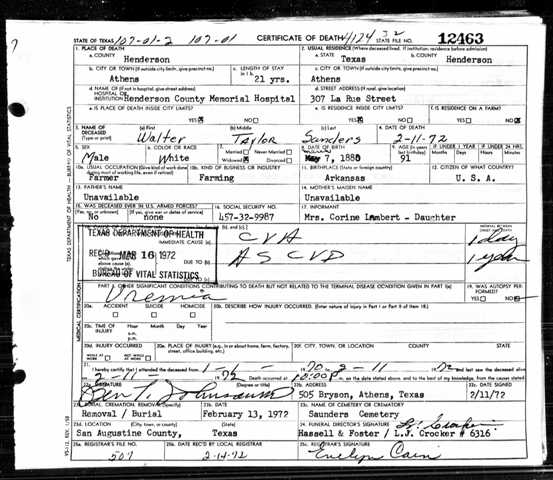 STATE OF TEXAS 107-01-2 107-01 CERTIFICATE OF DEATH 4124 32 STATE FILE NO. 12463
1. PLACE OF DEATH 2. USUAL RESIDENCE (Where deceased lived. If institution: residence before admission)
a. COUNTY Henderson a. STATE Texas b. COUNTY Henderson
b. CITY OR TOWN (If outside city limits, give precinct no.) c. LENGTH OF STAY c. CITY OR TOWN (If outside city limits, give precinct no.)
Athens 21 yrs. Athens
d. NAME OF (If not in hospital, give street address)
HOSPITAL OR
INSTITUTION Henderson County Memorial Hospital 307 La Rue Street
e. IS PLACE OF DEATH INSIDE CITY LIMITS? e. IS RESIDENCE INSIDE CITY LIMITS? f. IS RESIDENCE ON A FARM?
YES NO YES NO YES NO
3. NAME OF DECEASED (a) First (b) Middle (c) Last 4. DATE OF DEATH
Walter Taylor Sanders 2-11-72
5. SEX 6. COLOR OR RACE 7. Married Never Married 8. DATE OF BIRTH 9. AGE IF UNDER 1 YEAR IF UNDER 24 HRS.
Male White Widowed Divorced May 7, 1880 91
10a. USUAL OCCUPATION (Give kind of work done 10b. KIND OF BUSINESS OR INDUSTRY 11. BIRTHPLACE (State or foreign country) 12. CITIZEN OF WHAT COUNTRY?
Farmer Farming Arkansas U. S. A.
13. FATHER'S NAME 14. MOTHER'S MAIDEN NAME
Unavailable Unavailable
15. WAS DECEASED EVER IN U.S. ARMED FORCES? 16. SOCIAL SECURITY NO. 17. INFORMANT
No none 457-32-9987 Mrs. Corine Lambert - Dauchter
TEXAS DEPARTMENT OF HEALTH
IMMEDIATE CAUSE (a) CVA 1 day
REC'D MAR 16 1972 DUE TO (b) ASCVD
BUREAU OF VITAL STATISTICS
OTHER SIGNIFICANT CONDITIONS CONTRIBUTING TO DEATH BUT NOT RELATED TO THE TERMINAL DISEASE CONDITION GIVEN IN PART I(a) 19. WAS AUTOPSY PERFORMED?
Uremia YES NO
20a. ACCIDENT SUICIDE HOMICIDE 20b. DESCRIBE HOW INJURY OCCURRED. (Enter nature of injury in Part I or Part II of item 18.)
20c. TIME OF INJURY Hour Month Day Year
a.m.
p.m.
20d. INJURY OCCURRED 20e. PLACE OF INJURY (e.g., in or about home, farm, factory, street, office building, etc.) 20f. CITY, TOWN, OR LOCATION COUNTY STATE
WHILE AT WORK NOT WHILE AT WORK
21. I hereby certify that I attended the deceased from 1 - 70 to 2 - 11 - 72 and last saw the deceased alive
on 2 - 11 - 72 Death occurred at on the date stated above, and to the best of my knowledge, from the causes stated
22a. SIGNATURE (Degree or title) 22b. ADDRESS 22c. DATE SIGNED
505 Bryson, Athens, Texas 2/11/72
23a. BURIAL, CREMATION, REMOVAL (Specify) 23b. DATE 23c. NAME OF CEMETERY OR CREMATORY
Removal / Burial February 13, 1972 Saunders Cemetery
23d. LOCATION (City, town, or county) (State) 24. FUNERAL DIRECTOR'S SIGNATURE
San Augustine County, Texas Hassell & Foster / L.J. Crocker # 6316
25a. REGISTRAR'S FILE NO. 25b. DATE REC'D BY LOCAL REGISTRAR 25c. REGISTRAR'S SIGNATURE
507 2-14-72 Evelyn Cain
TEXAS DEPARTMENT OF HEALTH - BUREAU OF VITAL STATISTICS
MEDICAL CERTIFICATION